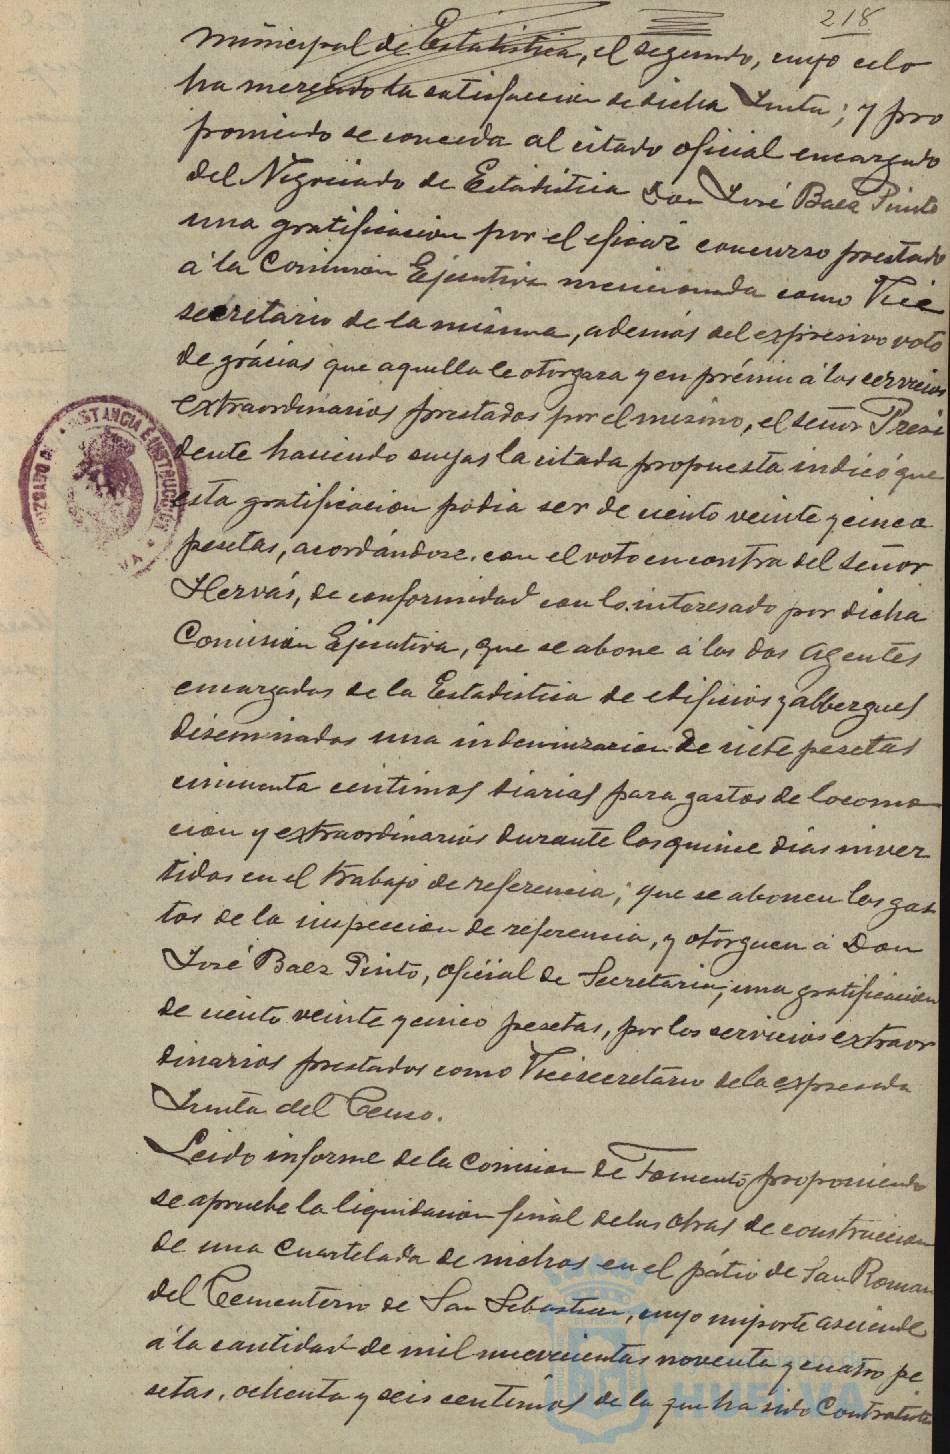 218
Municipal de Estadística, el segundo, cuyo celo
ha merecido la satisfaccion de dicha Junta; y pro
poniendo se conceda al citado oficial encargado
del Negociado de Estadística Don José Baez Pinto
una gratificacion por el eficaz concurso prestado
á la Comision Ejecutiva mencionada como Vice
secretario de la misma, además del expresivo voto
de grácias que aquella le otorgara y en prémio á los servicios
extraordinarios prestados por el mismo, el señor Presi
dente haciendo suyas la citada propuesta indicó que
esta gratificacion podia ser de ciento veinte y cinco
pesetas, acordándose, con el voto en contra del señor
Hervás, de conformidad con lo interesado por dicha
Comision Ejecutiva, que se abone á los dos Agentes
encargados de la Estadística de edificios y albergues
diseminados una indemnizacion de siete pesetas
cincuenta céntimos diarias para gastos de locomo
cion y extraordinarios durante los quince dias inver
tidos en el trabajo de referencia; que se abonen los gas
tos de la inspeccion de referencia, y otorguen á Don
José Baez Pinto, oficial de Secretaria, una gratificacion
de ciento veinte y cinco pesetas, por los servicios extraor
dinarios prestados como Vicesecretario de la expresada
Junta del Censo.
Leido informe de la Comision de Fomento proponiendo
se apruebe la liquidacion final de las obras de construccion
de una cuartelada de nichos en el pátio de San Roman
del Cementerio de San Sebastian, cuyo importe asciende
á la cantidad de mil novecientas noventa y cuatro pe
setas, ochenta y seis centimos de la que ha sido Contratista
JUZGADO DE 1ª INSTANCIA E INSTRUCCION
HUELVA